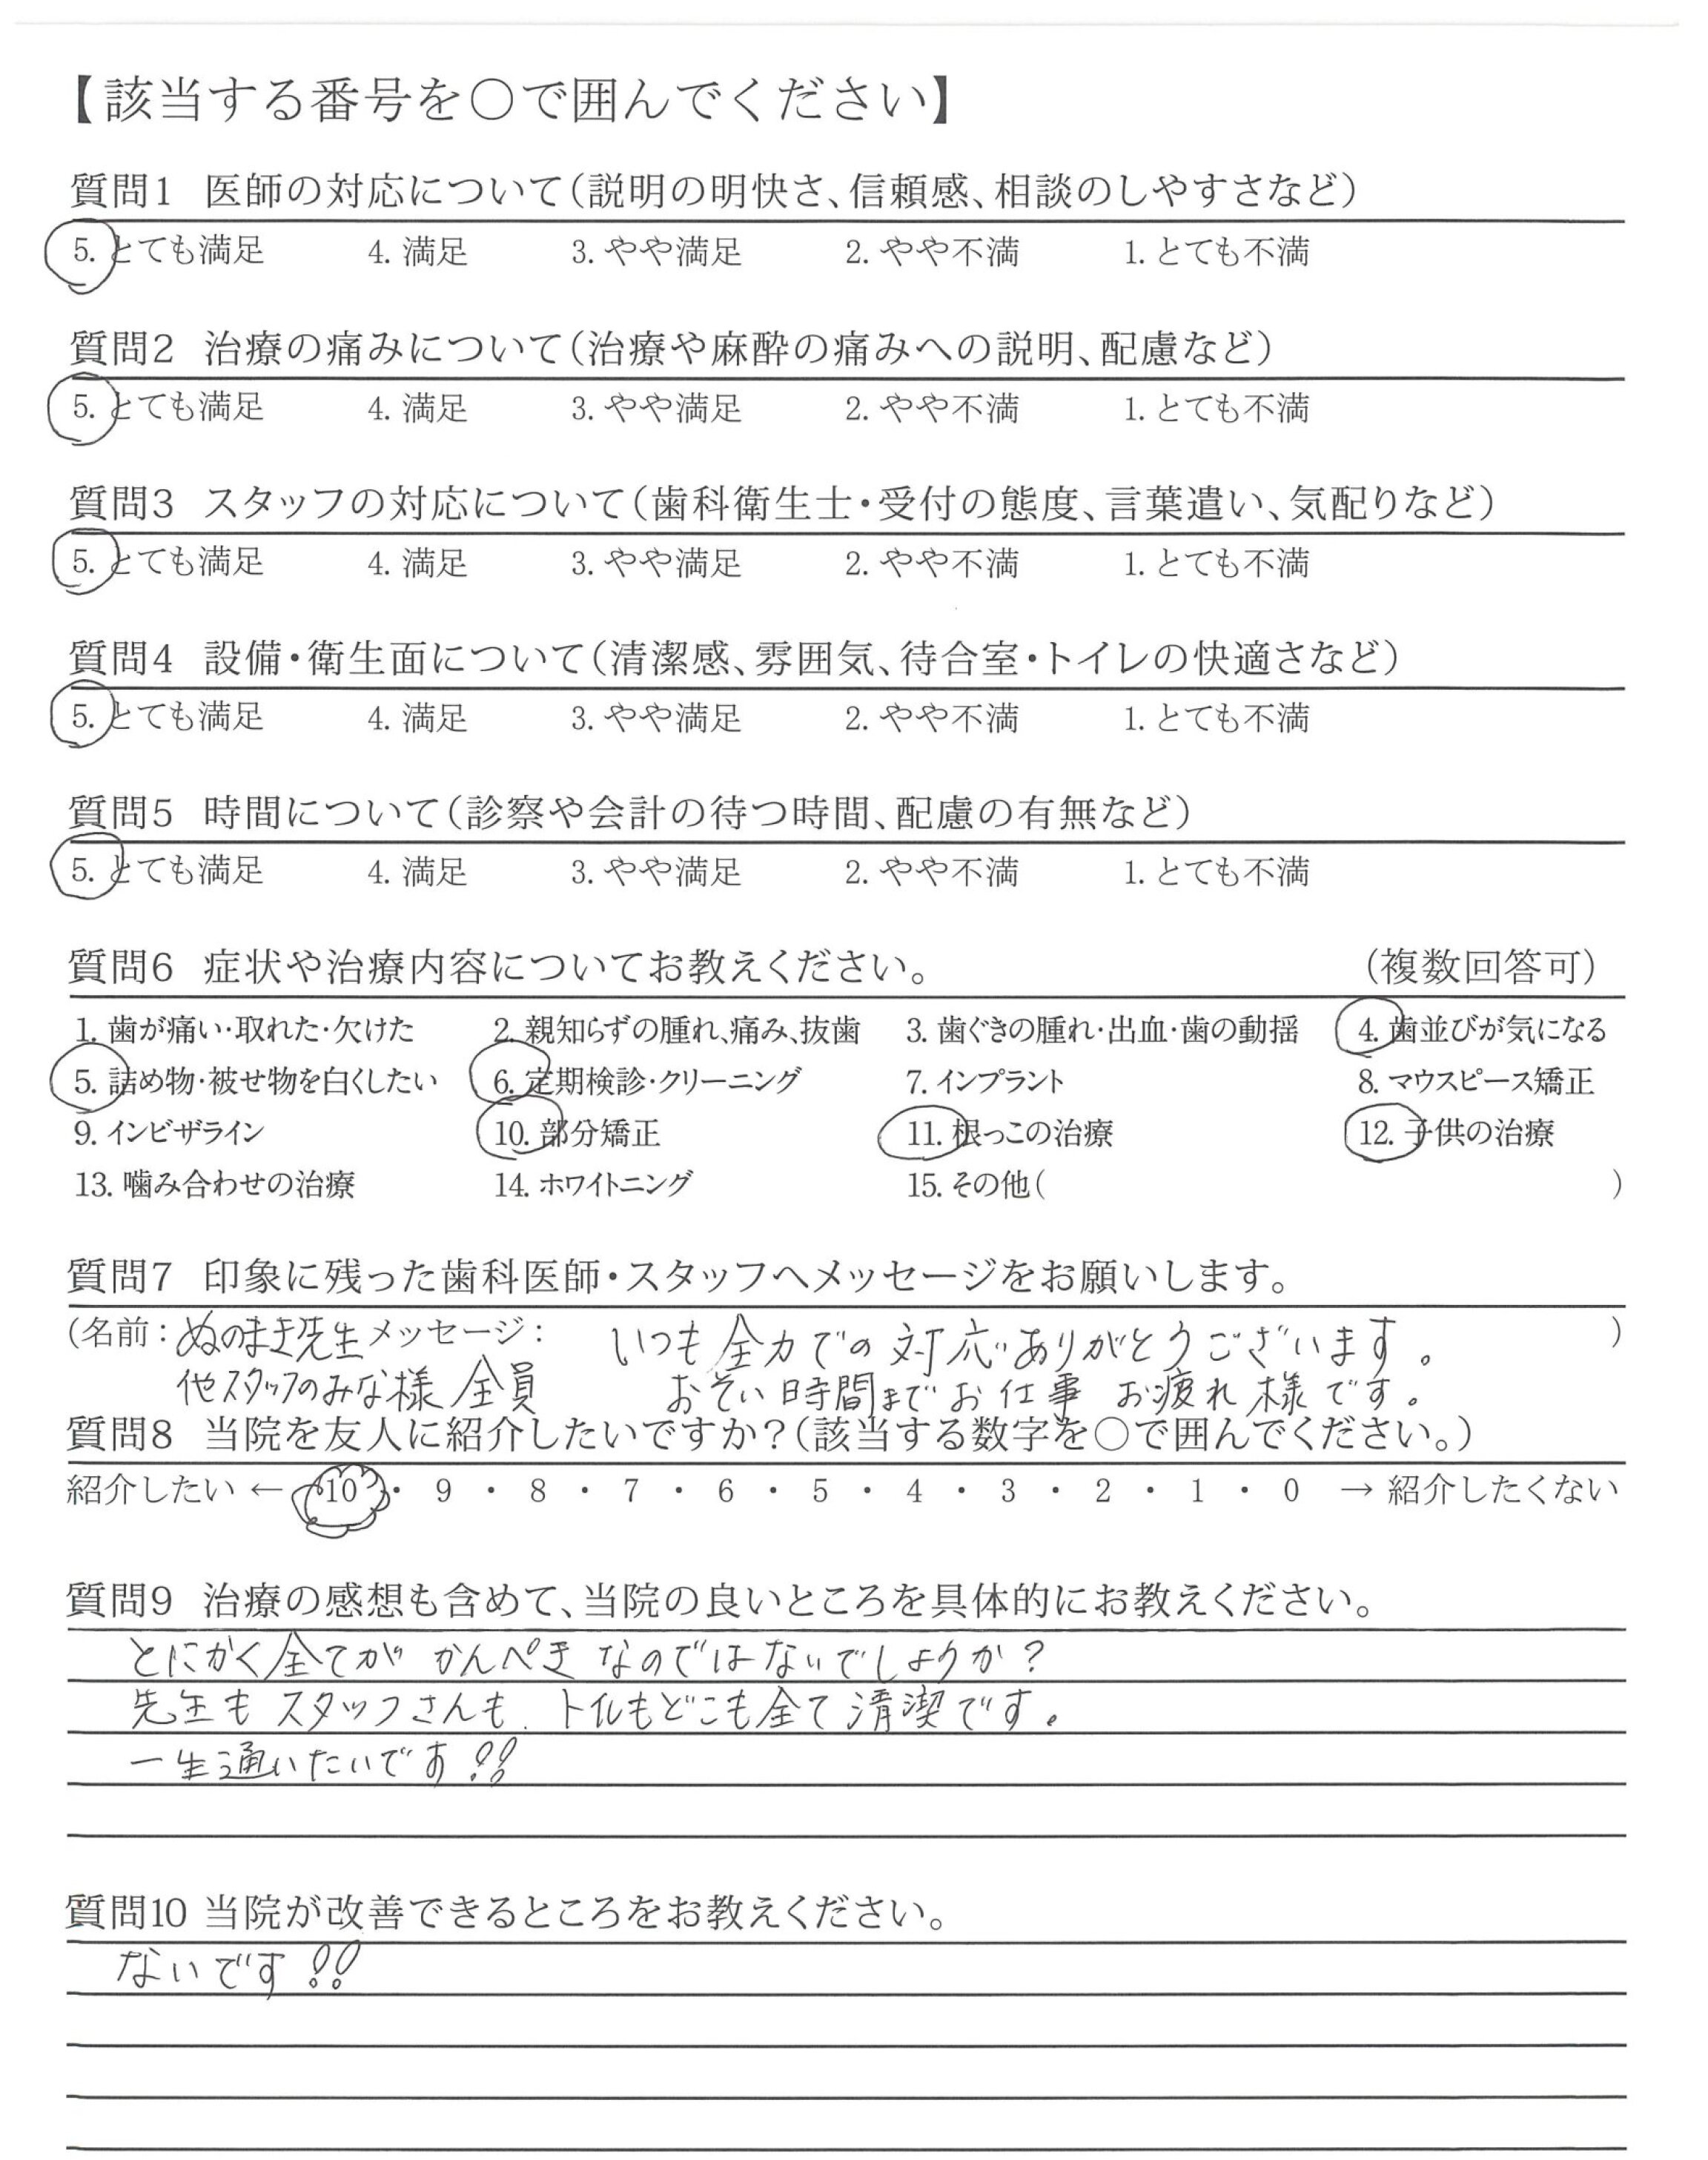 【該当する番号を〇で囲んでください】
質問1 医師の対応について(説明の明快さ、信頼感、相談のしやすさなど)
5. とても満足 4. 満足 3. やや満足 2. やや不満 1. とても不満
質問2 治療の痛みについて(治療や麻酔の痛みへの説明、配慮など)
5. とても満足 4. 満足 3. やや満足 2. やや不満 1. とても不満
質問3 スタッフの対応について(歯科衛生士・受付の態度、言葉遣い、気配りなど)
5. とても満足 4. 満足 3. やや満足 2. やや不満 1. とても不満
質問4 設備・衛生面について(清潔感、雰囲気、待合室・トイレの快適さなど)
5. とても満足 4. 満足 3. やや満足 2. やや不満 1. とても不満
質問5 時間について(診察や会計の待つ時間、配慮の有無など)
5. とても満足 4. 満足 3. やや満足 2. やや不満 1. とても不満
質問6 症状や治療内容についてお教えください。 (複数回答可)
1. 歯が痛い・取れた・欠けた 2. 親知らずの腫れ、痛み、抜歯 3. 歯ぐきの腫れ・出血・歯の動揺 4. 歯並びが気になる
5. 詰め物・被せ物を白くしたい 6. 定期検診・クリーニング 7. インプラント 8. マウスピース矯正
9. インビザライン 10. 部分矯正 11. 根っこの治療 12. 子供の治療
13. 噛み合わせの治療 14. ホワイトニング 15. その他( )
質問7 印象に残った歯科医師・スタッフへメッセージをお願いします。
(名前: ぬのまき先生 メッセージ: いつも全力での対応ありがとうございます。 )
他スタッフのみな様 全員 おそい時間までお仕事 お疲れ様です。
質問8 当院を友人に紹介したいですか?(該当する数字を〇で囲んでください。)
紹介したい ← 10 ・ 9 ・ 8 ・ 7 ・ 6 ・ 5 ・ 4 ・ 3 ・ 2 ・ 1 ・ 0 → 紹介したくない
質問9 治療の感想も含めて、当院の良いところを具体的にお教えください。
とにかく全てが かんぺき なのではないでしょうか?
先生も スタッフさんも、トイレもどこも全て清潔です。
一生通いたいです!!
質問10 当院が改善できるところをお教えください。
ないです!!